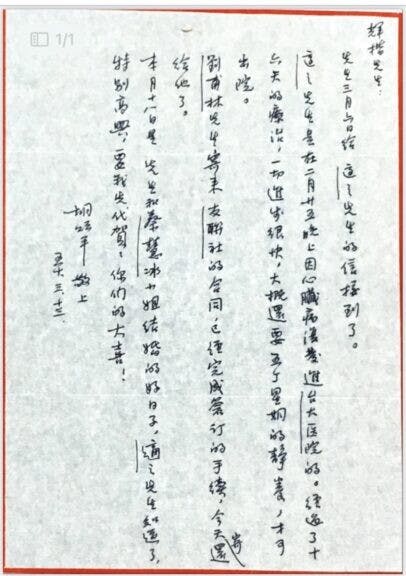 1/1
輝楷先生：
先生三月六日給 適之先生的信接到了。
適之先生是在二月廿五晚上因心臟病復發進台大医院的。經過了十
六天的療治，一切進步很快。大概還要五个星期的靜養，才可
出院。
劉甫林先生寄來友聯社的合同，已經完成簽訂的手續，今天還寄
給他了。
本月十八日是 先生和蔡慧冰小姐結婚的好日子，適之先生知道了，
特別高興，要我先代賀：你们的大喜！
胡頌平 敬上
五十、三、十三、